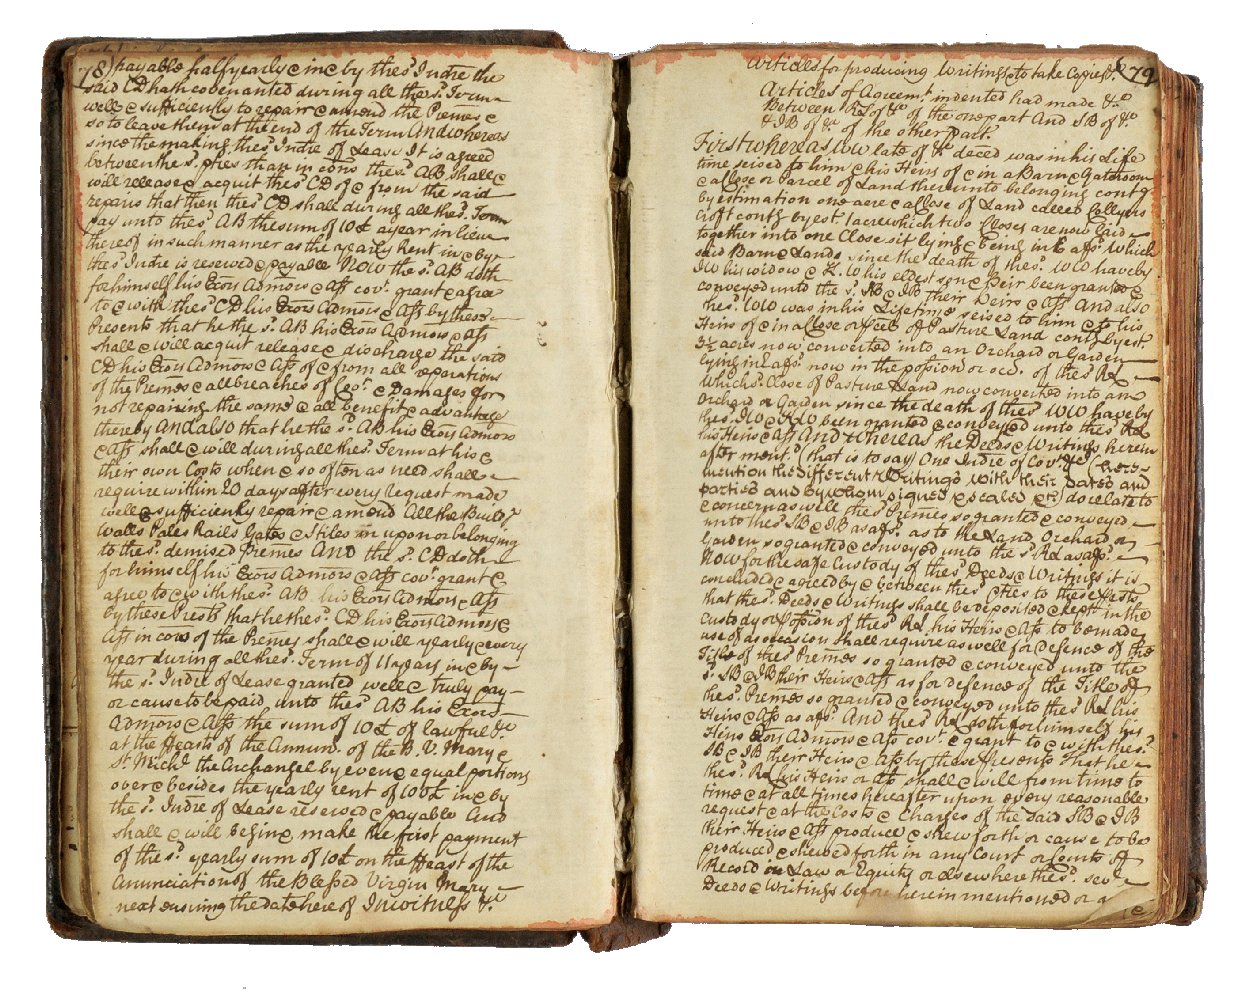 78) payable halfyearly & in & by the s.d Ind̄re the
said CD hath covenanted during all the s.d Term
well & sufficiently to repair & amend the Prem̄es &
so to leave them at the end of the Term And whereas
since the making the s.d Ind̄re of Lease It is agreed
between the s.d pties than in cōns the s.d AB shall &
will release & acquit the s.d CD of & from the said
repairs that then the s.d CD shall during all the s.d Term
pay unto the s.d AB the sum of 10£ a year in lieu
thereof in such manner as the yearly Rent in & by
the s.d Ind̄re is reserved & payable Now the s.d AB doth
for himself his Exors Admors & Ass cov.t grant & agree
to & with the s.d CD his Exors Admors & Ass by these
Presents that he the s.d AB his Exors Admors & Ass
shall & will acquit release & discharge the said
CD his Exors Admors & Ass of & from all reparations
of the Prem̄es & all breaches of Cov.t & Damages for
not repairing the same & all benefit & advantage
thereby And also that he the s.d AB his Exors Admors
& Ass shall & will during all the s.d Term at his &
their own Costs when & so often as need shall
require within 20 days after every request made
well & sufficiently repair & amend All the Build.s
Walls Pales Rails Gates & Stiles in upon or belonging
to the s.d demised Premes And the s.d CD doth
for himself his Exors Admors & Ass cov.t grant &
agree to & with the s.d AB his Exors Admors & Ass
by these Presents that he the s.d CD his Exors Admors &
Ass in cons of the Prem̄es shall & will yearly & every
year during all the s.d Term of 11 years in & by
the s.d Ind̄re of Lease granted well & truly pay
or cause to be paid unto the s.d AB his Exors
Admors & Ass the sum of 10£ of lawful &c
at the ffeasts of the Annun. of the B. V. Mary &
St Mich.l the Archangel by even & equal portions
over & besides the yearly rent of 100£ in & by
the s.d Ind̄re of Lease reserved & payable And
shall & will begin & make the first payment
of the s.d yearly sum of 10£ on the ffeast of the
Anunciation of the Blessed Virgin Mary
next ensuing the date hereof In witness &c
Articles for producing Writings to take Copies &c (79
Articles of Agreem.t indented had made &c
Between RL of &c of the one part And SB of &c
& IB of &c of the other part.
First whereas WW late of &c deced was in his Life
time seised to him & his Heirs of & in a Barn & Gateroom
& a Close or Parcel of Land thereunto belonging cont.g
by estimation one acre & a Close of Land called Collyers
Croft cont.g by est. 1 acre which two Closes are now laid
together into one Close sit lying & being in E afs.d Which
said Barn & Lands since the death of the s.d WW have by
IW his widow & K.W his eldest son & Heir been granted &
conveyed unto the s.d SB & IB their Heirs & Ass And also
the s.d WW was in his Lifetime seised to him & to his
Heirs of & in a Close or Peel of Pasture Land cont.g by est.
3½ acres now converted into an Orchard or Garden
lying in E afs.d now in the possion or occ.n of the s.d RL
Which s.d Close of Pasture Land now converted into an
Orchard or Garden since the death of the s.d WW have by
the s.d IW & KW been granted & conveyed unto the s.d RL
his Heirs & Ass And whereas the Deeds & Writings herein
after ment.d (that is to say) One Ind̄re of Cov.ts &c (here
mention the different Writings with their Dates and
parties and by whom signed & sealed &c) do relate to
& concern as well the s.d Prem̄es so granted & conveyed
unto the s.d SB & IB as afs.d as to the Land Orchard or
Garden so granted & conveyed unto the s.d RL as afs.d
Now for the safe Custody of the s.d Deeds & Writings it is
concluded & agreed by & between the s.d Pties to these Prsts
that the s.d Deeds & Writings shall be deposited & kept in the
custody or possion of the s.d RL his Heirs & Ass to be made
use of as occasion shall require as well for Defence of the
Title of the s.d Prem̄es so granted & conveyed unto the
s.d SB & IB their Heirs & Ass as for defence of the Title of
the s.d Premes so granted & conveyed unto the s.d RL his
Heirs & Ass as afs.d And the s.d RL doth for himself his
Heirs Exors Admors & Ass cov.t & grant to & with the s.d
SB & IB their Heirs & Ass by these Presents That he
the s.d RL his Heirs or Ass shall & will from time to
time & at all times hereafter upon every reasonable
request & at the Costs & Charges of the said SB & IB
their Heirs & Ass produce & shew forth or cause to be
produced & shewed forth in any Court or Courts of
Record in Law or Equity or elsewhere the s.d sev.l
Deeds & Writings before herein mentioned or a